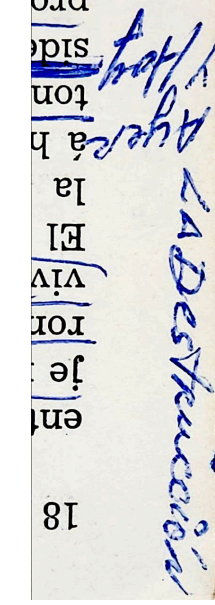 18
ent
je
ron
viv
El
la
á h
ton
side
pro
LA Destrucción
Ayer
Y Hoy